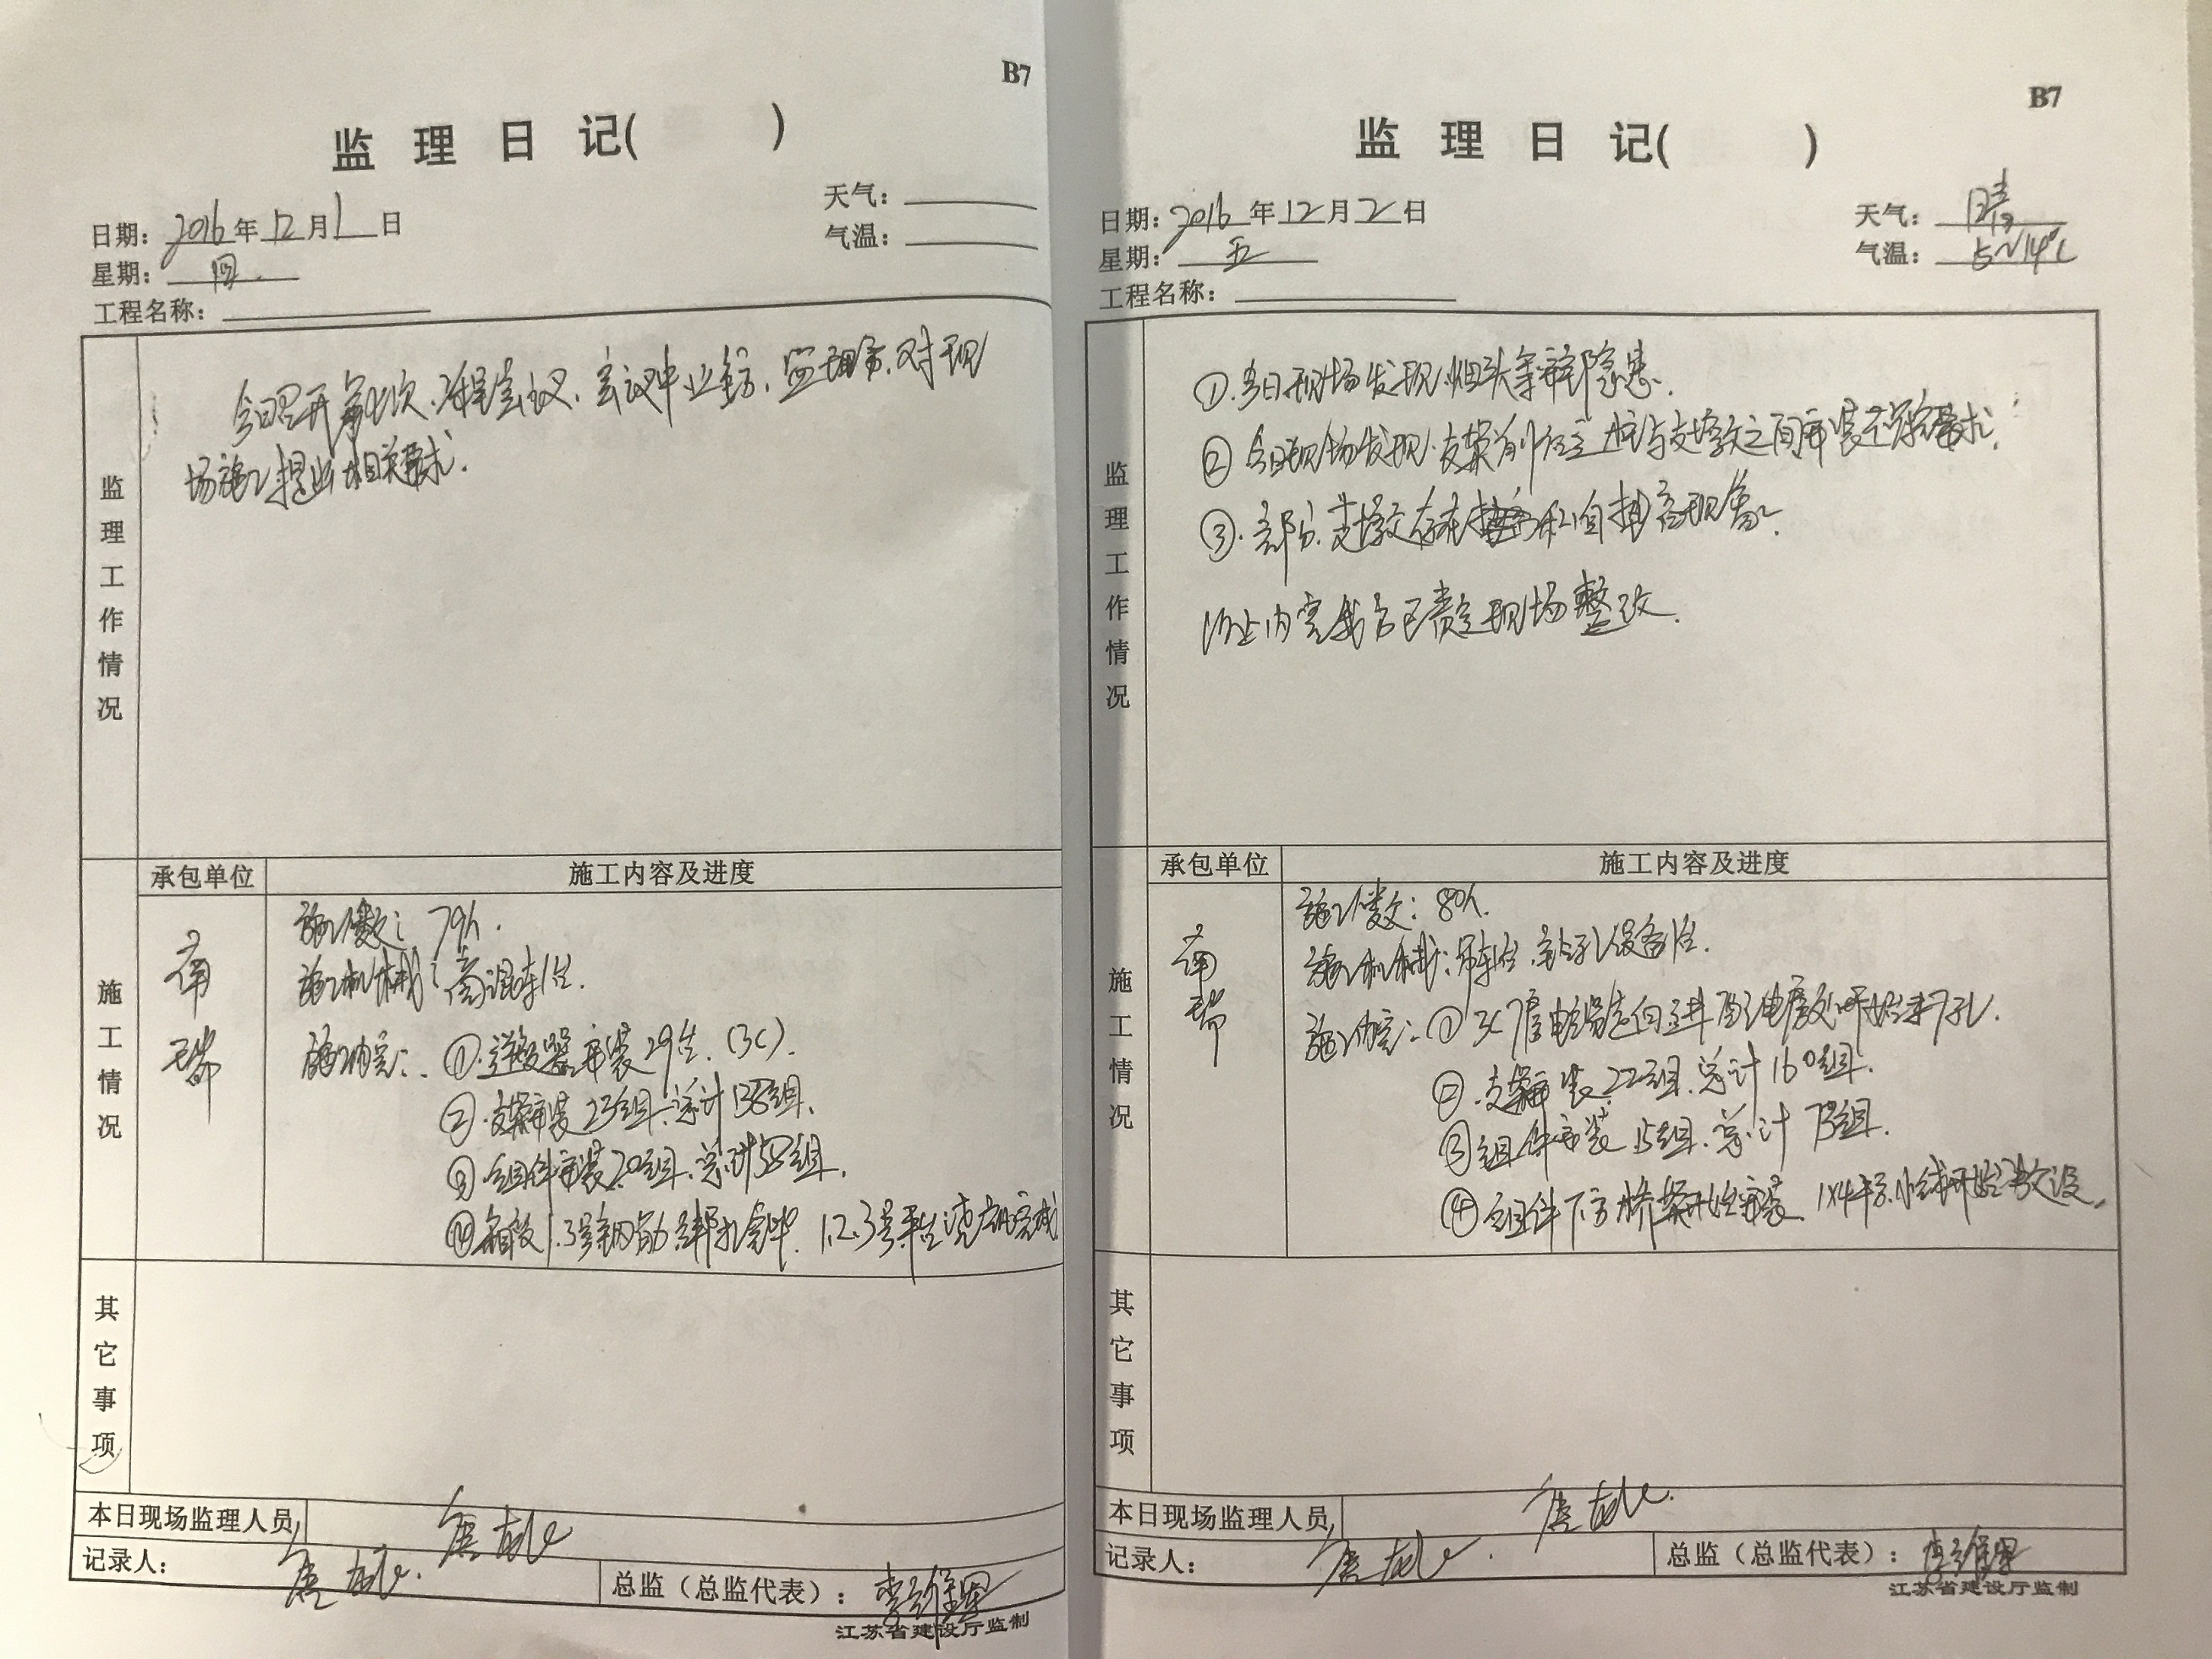 B7
监理日记( )
日期：2016年12月1日
天气：
星期：四.
气温：
工程名称：
监理工作情况
今日召开第七次工程会议，会议中业主方，监理方，对现
场施工提出相关要求.
承包单位
施工内容及进度
施工情况
南瑞
施工人数：79人.
施工机械：商混车1台.
施工内容：①.逆变器安装29台.（3C）.
②.支架安装23组.总计138组.
③组件安装20组.总计58组.
④箱变1.3号钢筋绑扎完毕. 1.2.3号完成
其它事项
本日现场监理人员
记录人：
总监（总监代表）：
江苏省建设厅监制
B7
监理日记( )
日期：2016年12月2日
天气：晴
星期：五
气温：5~14℃
工程名称：
监理工作情况
①.今日现场发现烟头等安全隐患.
②今日现场发现.支架前后立柱与支墩之间安装不符合要求.
③.部分支墩存在私自抽高现象.
以上内容我方已责令现场整改.
承包单位
施工内容及进度
施工情况
南瑞
施工人数：80人.
施工机械：吊车1台.钻孔设备1台.
施工内容：①3C7层电缆进配电房处开始开孔.
②.支架安装22组.总计160组.
③组件安装15组.总计73组.
④组件下方桥架开始安装 1×4平方.线开始敷设.
其它事项
本日现场监理人员
记录人：
总监（总监代表）：
江苏省建设厅监制